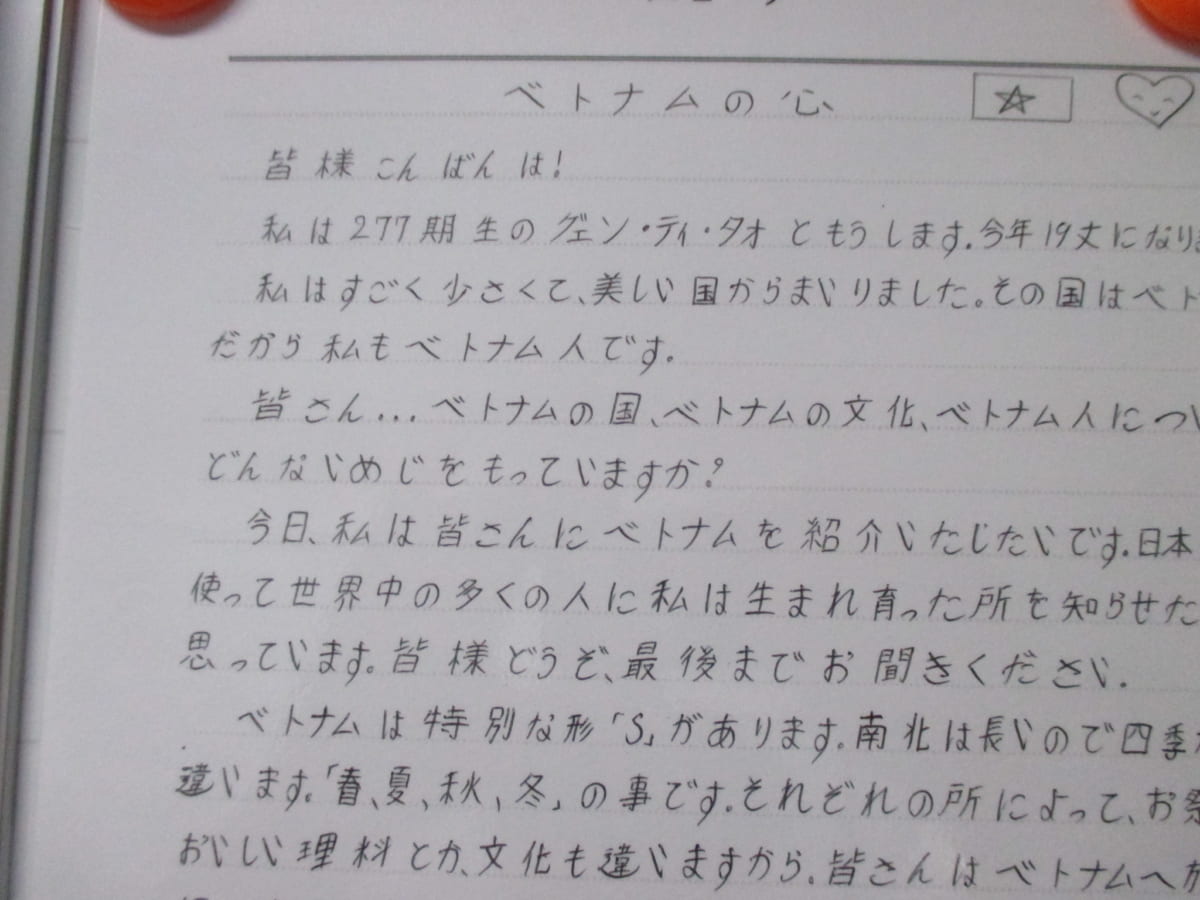 ベトナムの心
皆様こんばんは!
私は277期生のグェン・ティ・タオともうします.今年19丈になり
私はすごく少さくて、美しい国からまいりました。その国はベト
だから私もベトナム人です.
皆さん...ベトナムの国、ベトナムの文化、ベトナム人につい
どんないめじをもっていますか?
今日、私は皆さんにベトナムを紹介いたじたいです.日本
使って世界中の多くの人に私は生まれ育った所を知らせた
思っています。皆様どうぞ、最後までお聞きください.
ベトナムは特別な形「S」があります.南北は長いので四季
違います.「春、夏、秋、冬」の事です.それぞれの所によって、お祭
おいしい理料とか、文化も違いますから.皆さんはベトナムへ